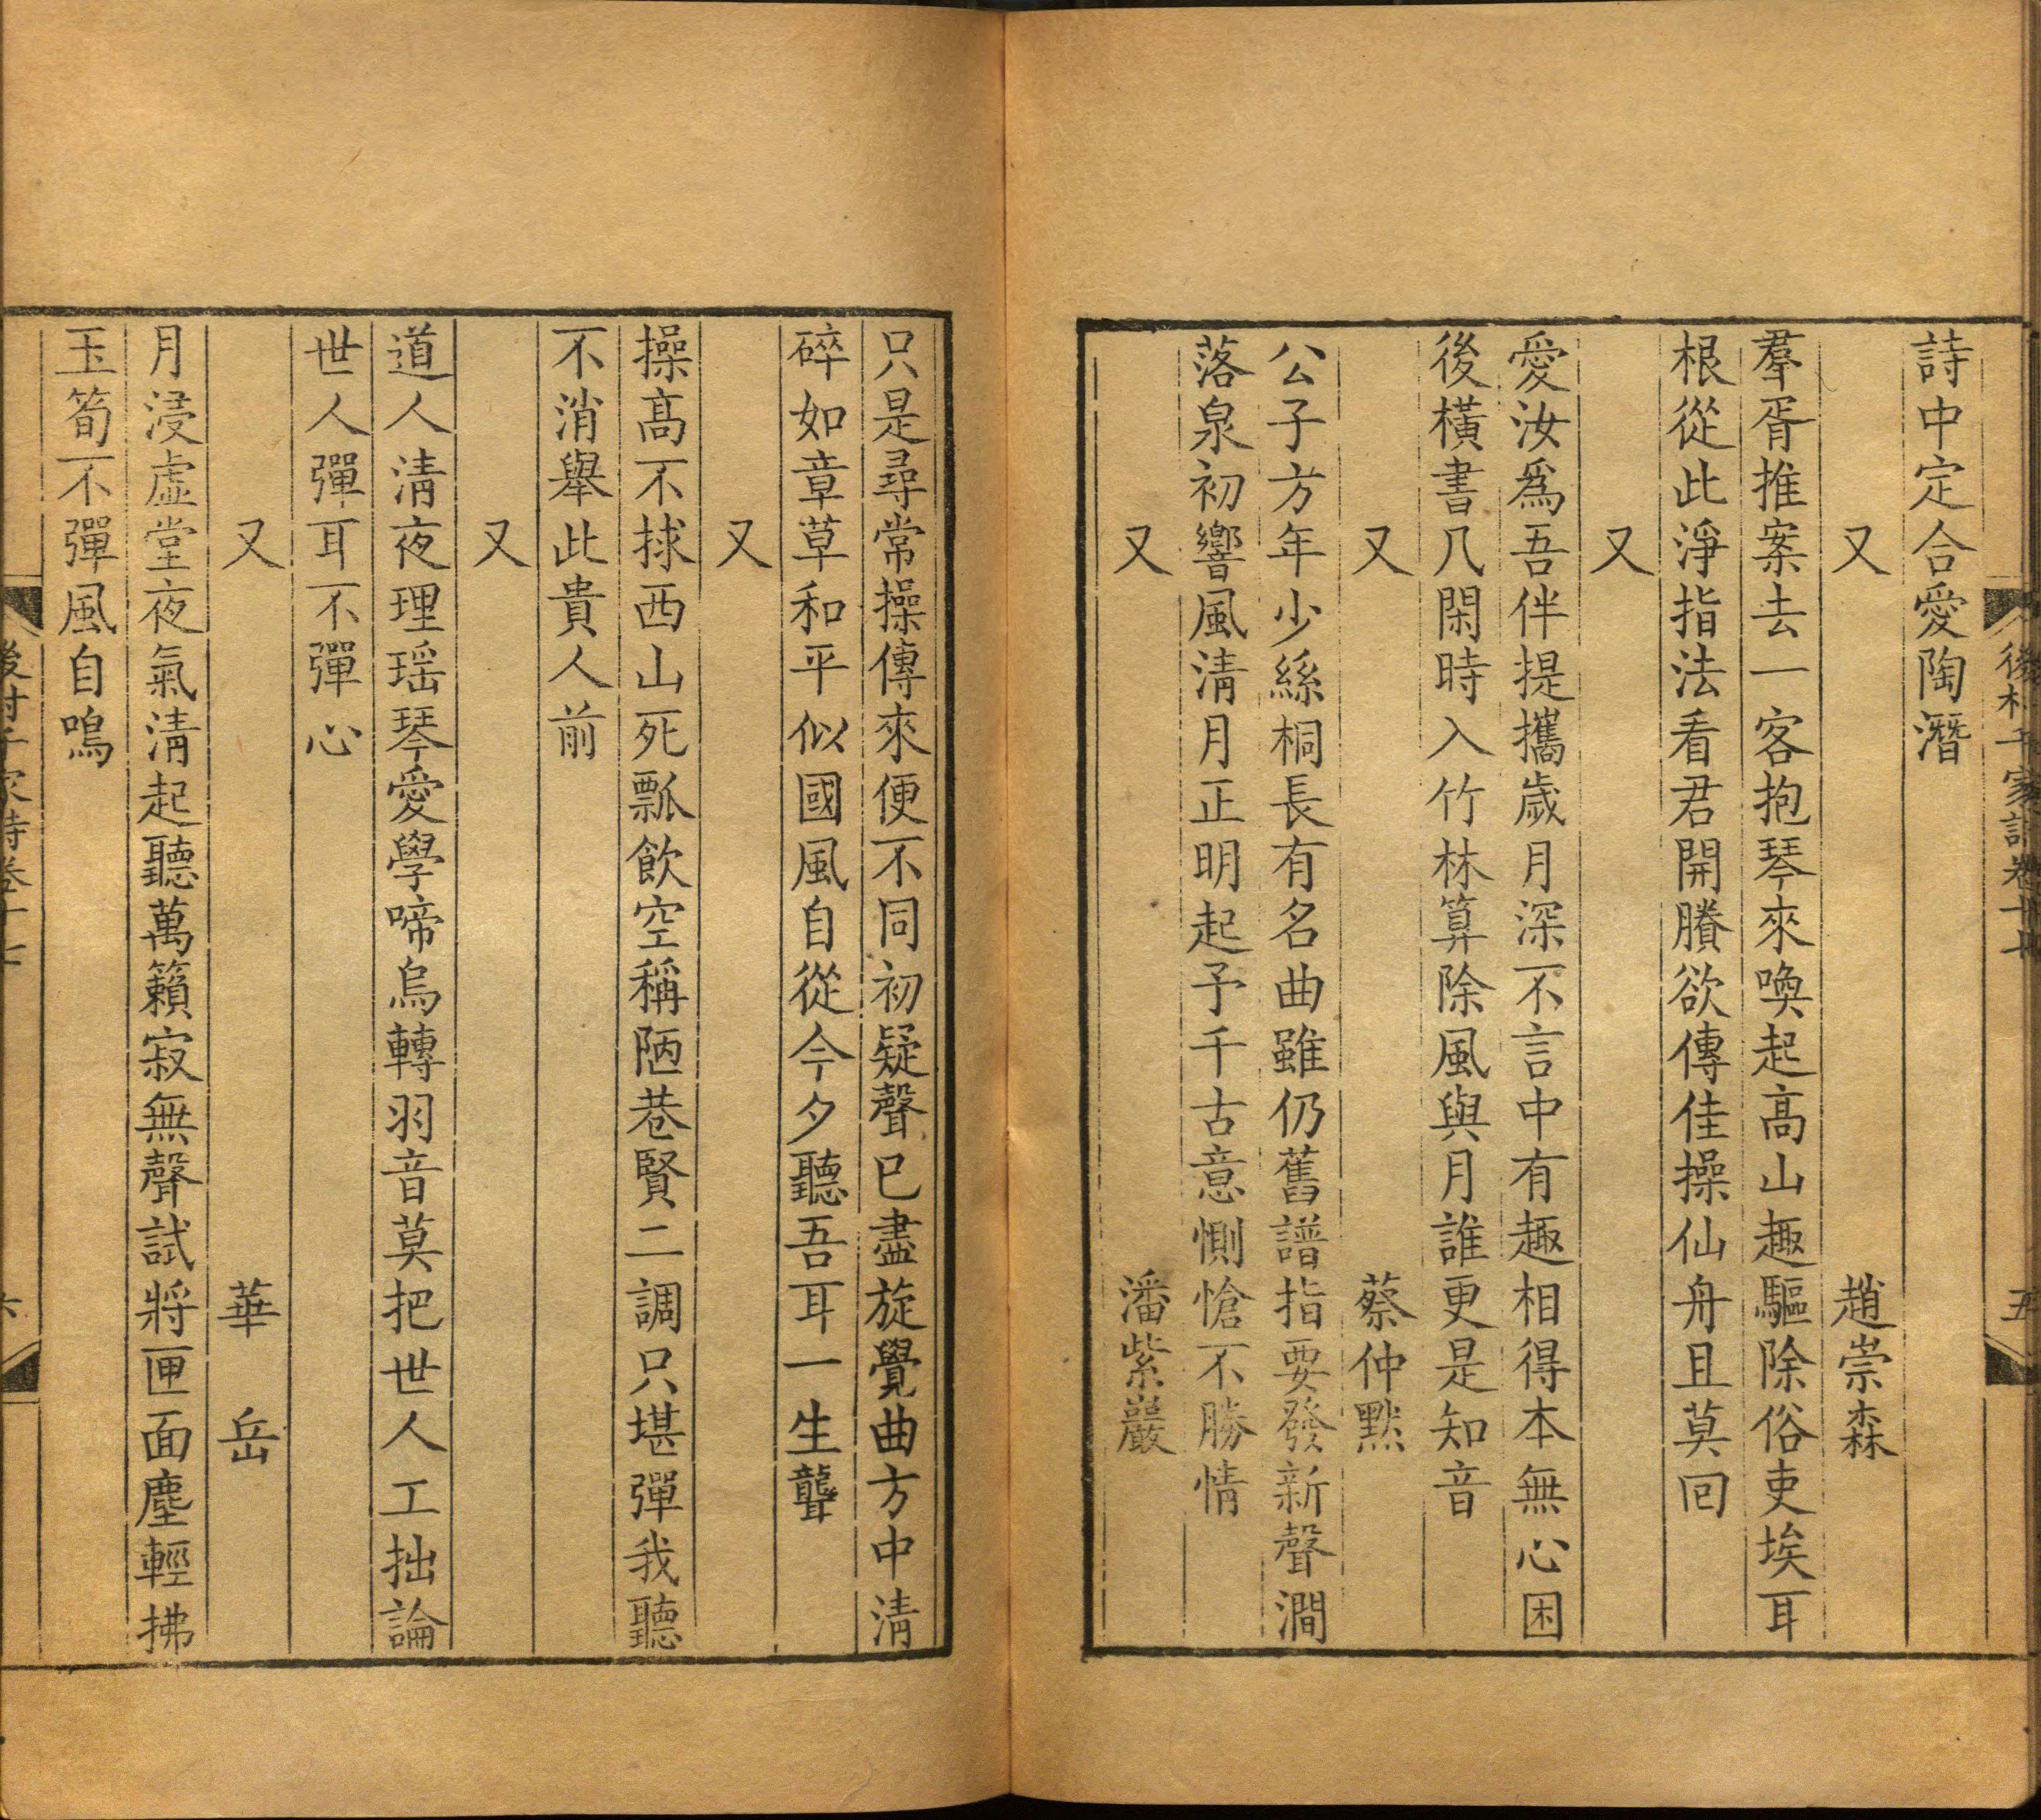 詩中定合愛陶潛
又　趙崇森
羣胥推案去一客抱琴來喚起高山趣驅除俗吏埃耳
根從此淨指法看君開賸欲傳佳操仙舟且莫回
又
愛汝爲吾伴提攜歲月深不言中有趣相得本無心困
後橫書几閑時入竹林算除風與月誰更是知音
又　蔡仲黙
公子方年少絲桐長有名曲雖仍舊譜指要發新聲澗
落泉初響風淸月正明起予千古意惻愴不勝情
又　潘紫巖
只是尋常操傳來便不同初疑聲已盡旋覺曲方中淸
碎如章草和平似國風自從今夕聽吾耳一生聾
又
操高不捄西山死瓢飮空稱陋巷賢二調只堪彈我聽
不消舉此貴人前
又
道人淸夜理瑶琴愛學啼烏轉羽音莫把世人工拙論
世人彈耳不彈心
又　華岳
月浸虛堂夜氣淸起聽萬籟寂無聲試將匣面塵輕拂
玉筍不彈風自鳴